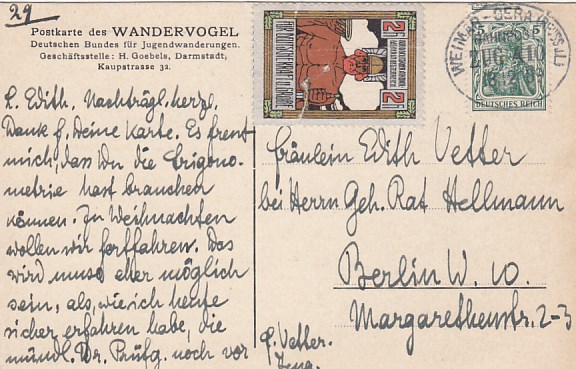 29
Postkarte des WANDERVOGEL
Deutschen Bundes für Jugendwanderungen.
Geschäftsstelle: H. Goebels, Darmstadt,
Kaupstrasse 32.
L. Edith. Nachträgl. herzl.
Dank f. Deine Karte. Es freut
mich, dass Du die Trigono-
metrie hast brauchen
können. Zu Weihnachten
wollen wir fortfahren. Das
wird umso eher möglich
sein, als, wie ich heute
sicher erfahren habe, die
mündl. Dr. Prüfg. noch vor
2 Pf. 2 Pf.
WEIMAR-GERA
BAHNPOST
ZUG
5 5
DEUTSCHES REICH
Fräulein Edith Vetter
bei Herrn Geh. Rat Hellmann
Berlin W. 10.
Margarethenstr. 2-3
Q. Vetter.
Jena.